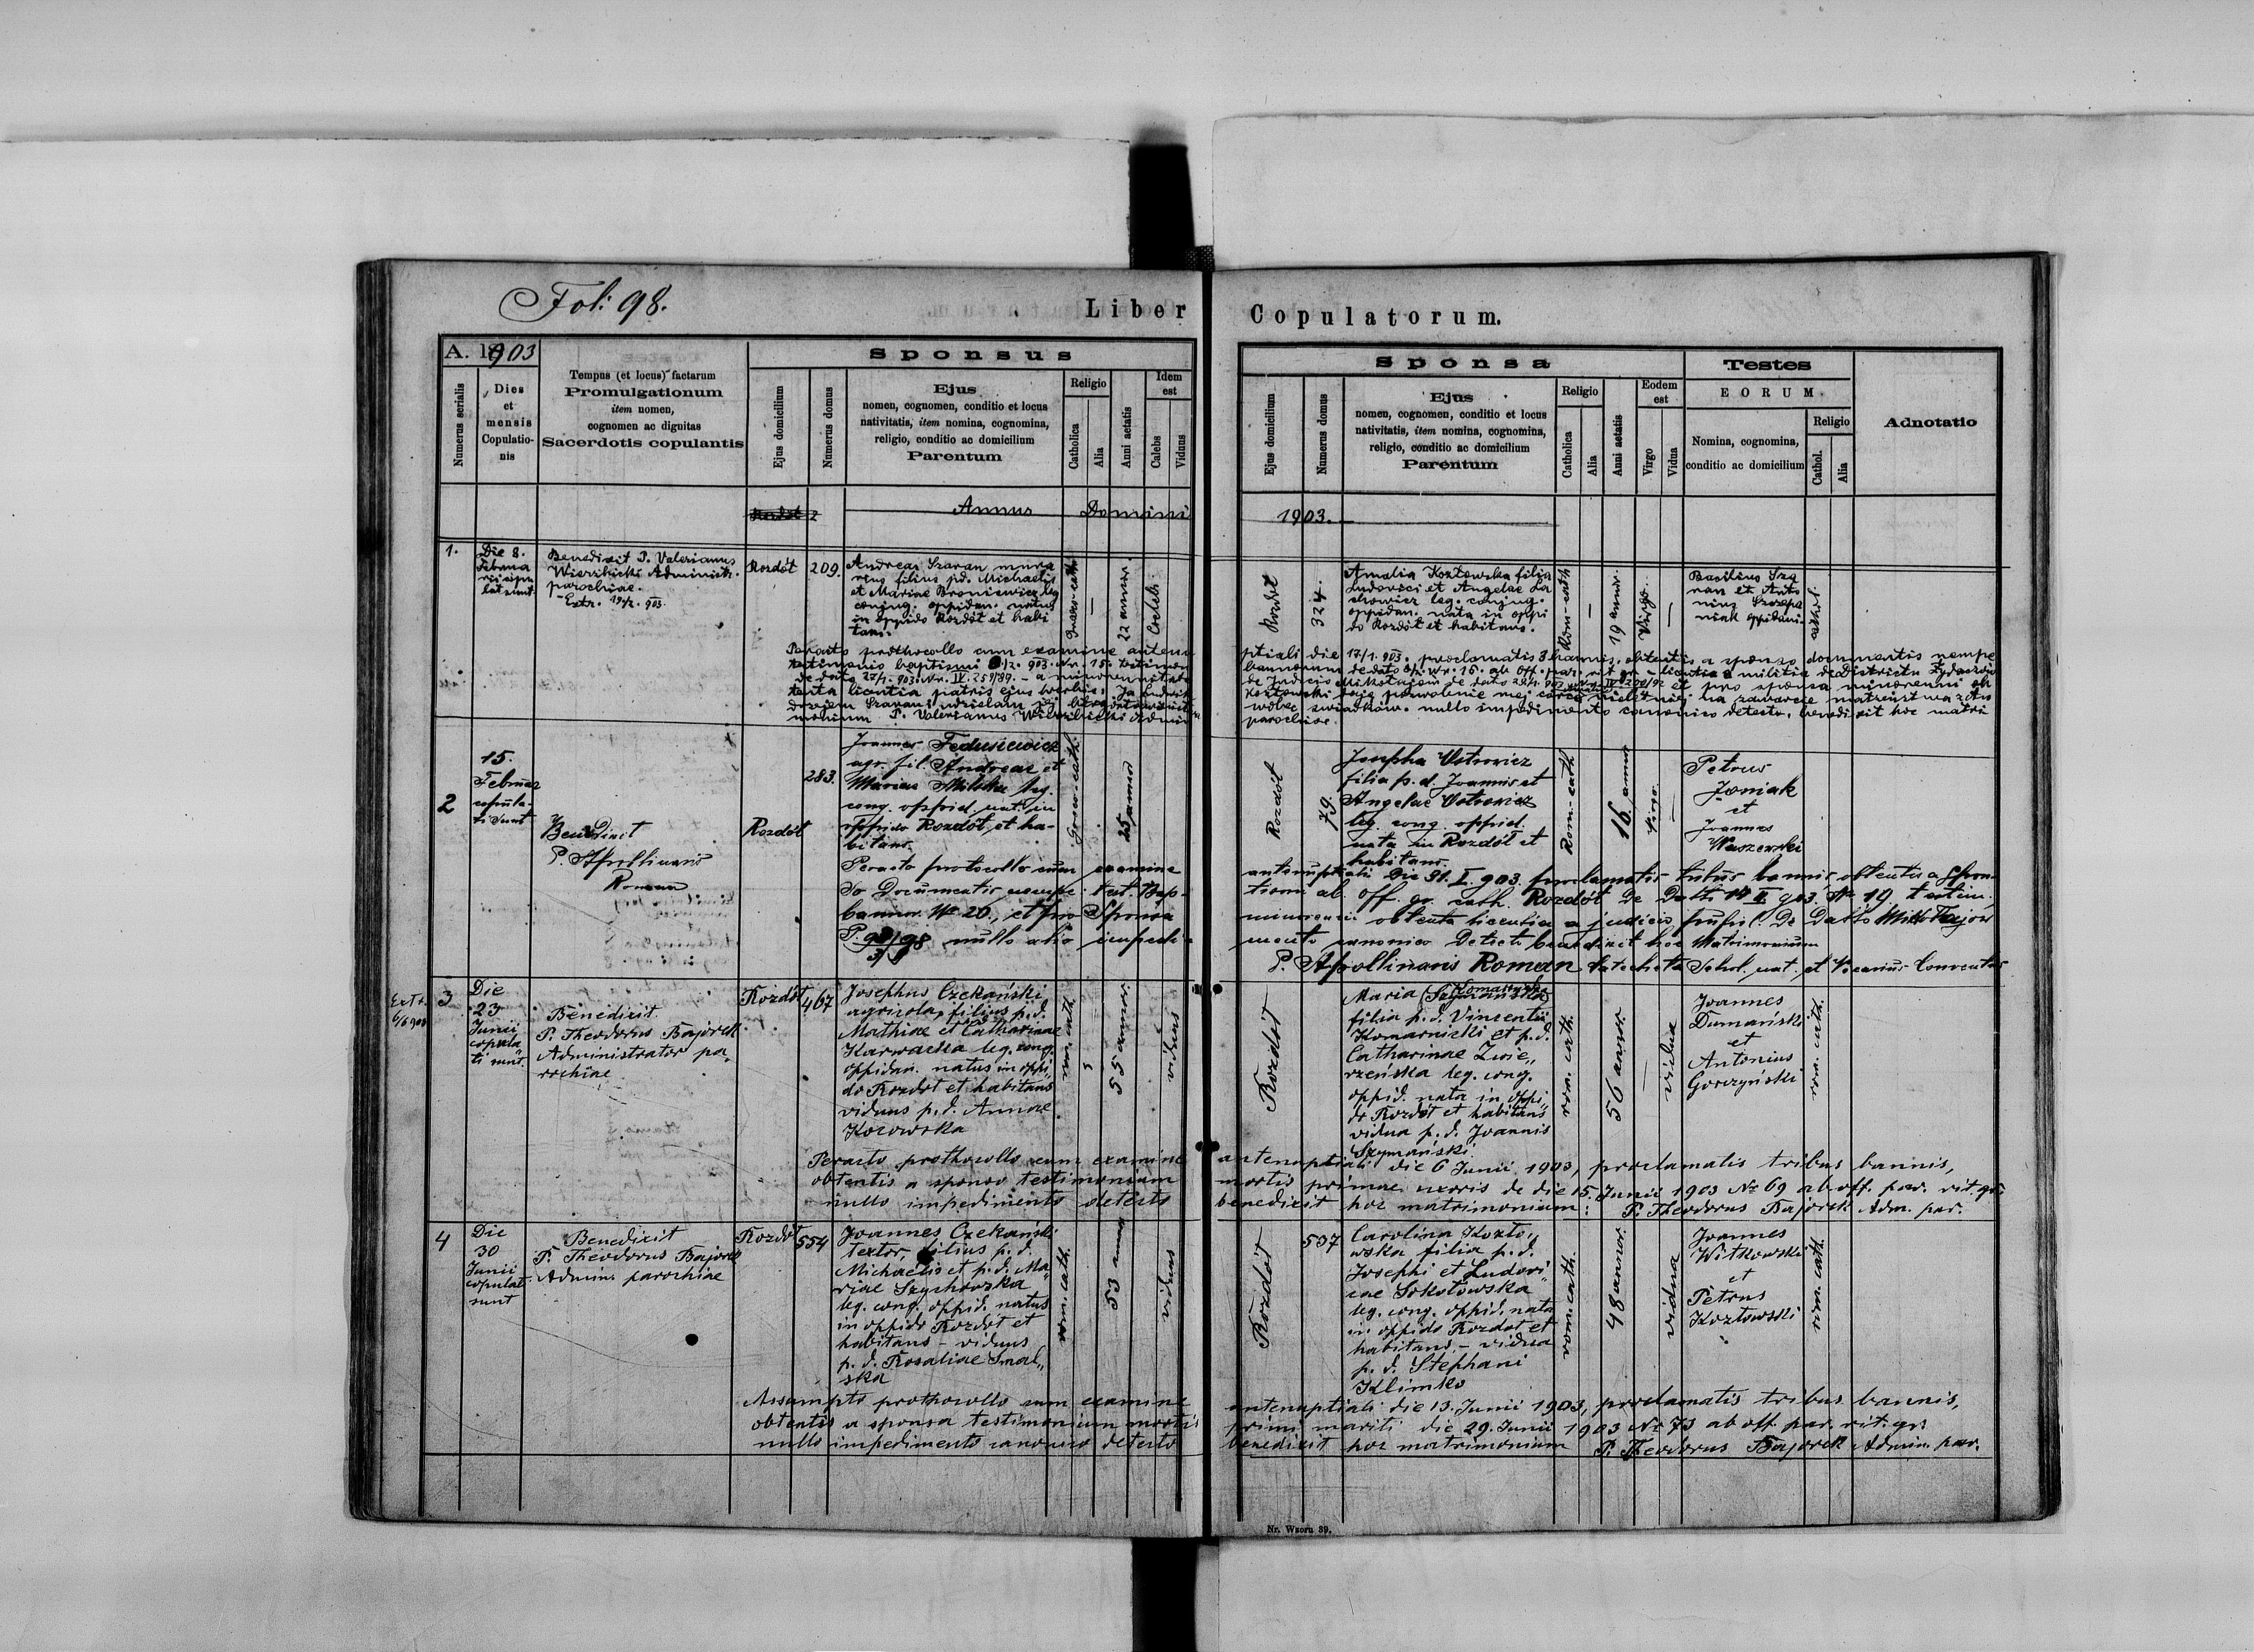 Fol: 98.
Liber Copulatorum.
A. 1903
Numerus serialis
Dies
et
mensis
Copulatio-
nis
Tempus (et locus) factarum
Promulgationum
item nomen,
cognomen ac dignitas
Sacerdotis copulantis
Sponsus
Ejus domicilium
Numerus domus
Ejus
nomen, cognomen, conditio et locus
nativitatis, item nomina, cognomina,
religio, conditio ac domicilium
Parentum
Religio
Catholica
Alia
Anni aetatis
Idem
est
Calebs
Viduus
Sponsa
Ejus domicilium
Numerus domus
Ejus
nomen, cognomen, conditio et locus
nativitatis, item nomina, cognomina,
religio, conditio ac domicilium
Parentum
Religio
Catholica
Alia
Anni aetatis
Eodem
est
Virgo
Vidua
Testes
EORUM
Nomina, cognomina,
conditio ac domicilium
Religio
Cathol.
Alia
Adnotatio
Annus Domini 1903.
1.
Die 8.
Februa
rii copu
lati sunt
Benedixit P. Valerianus
Wierzbicki Administr.
parochiae.
Extr. 19/2. 903.
Rozdół
209.
Andreas Szaran mura
rius filius p.d. Michaelis
et Mariae Broniewicz leg
conjug. oppidan. natus
in oppido Rozdół et habi
tans.
Graeco-cath.
22 annor.
Coelebs
Rozdół
324.
Amalia Kozłowska filia
Ludovici et Angelae La
chowicz leg. conjug.
oppidan. nata in oppi
do Rozdół et habitans.
Rom-cath
19 annor.
Virgo.
Basilius Sza
ran et Anto
nius Szczepa
niak oppidani
cathol.
Peracto prothocollo cum examine antenu
ptiali die 17/1. 903. proclamatis 3 bannis, obtentis a sponso documentis nempe
testimonio baptismi 903. Nr. 15. testimon
bannorum de dato Nr. 16. ab off. par. rit. gr. licentia a militia
de dato 27/1. 903. Nr. IV. 259/89. - a
de Judicio Mikołajów de dato et pro sponsa minorenni ob
tenta licentia patris ejus verbis: Ja Ludwik
Kozłowski daję pozwolenie mej córce na zawarcie małżeństwa z An
drzejem Szaran i udzielam jej
wobec świadków. nullo impedimento canonico detecto, benedixit hoc matri
monium P. Valerianus Wierzbicki Admin
parochiae.
2
15.
Februar
copula-
ti sunt
Benedixit
P. Apollinaris
Roman
Rozdół
283.
Joannes Fedusiewicz
agr. fil. Andreae et
Mariae Milska leg.
cong. oppid. nat. in
oppido Rozdół et ha-
bitans.
Graeco-cath.
25 annor
Rozdół
79.
Josepha Ustrowicz
filia p.d. Joannis et
Angelae Ustrowicz
leg. cong. oppid.
nata in Rozdół et
habitans.
Rom.-cath
16 annor
Virgo.
Petrus
Joniak
et
Joannes
Waszewski
Peracto protocollo cum examine
antenuptiali die 31. I. 903. proclamatis tribus bannis obtentis a Spon-
so Documentis nempe: test. Bap-
tismi ab off. gr. cath. Rozdół De Datto 903. Nr 19, testim.
bannor. Nr 20., et pro Sponsa
minorenni obtenta licentia a judicio pupil. De Datto Mikołajów
P. 98 nullo alio impedi-
mento canonico Detecto benedixit hoc Matrimonium
P. Apollinaris Roman Catecheta Schol. nat. et Vicarius Conventus
Extr.
6/6 908
3
Die
23
Junii
copula„
ti sunt.
Benedixit
P. Theodorus Bajorek
Administrator pa„
rochiae
Rozdół
467
Josephus Czekański
agricola, filius p.d.
Mathiae et Catharinae
Karwacka leg. cong.
oppidan. natus in oppi„
do Rozdół et habitans
viduus p.d. Annae
Kozowska
rom. cath.
55 annor.
viduus
Rozdół
Maria Szymańska
Komarnicka
filia p.d. Vincentii
Komarnicki et p.d.
Catharinae Zwie„
rzeńska leg. cong.
oppid. nata in oppi„
do Rozdół et habitans
vidua p.d. Joannis
Szymański.
rom. cath.
56 annor.
vidua
Joannes
Dumański
et
Antonius
Gorczyński
rom. cath.
Peracto prothocollo cum examine
antenuptiali die 6 Junii 1903, proclamatis tribus bannis,
obtentis a sponso testimonium
mortis primae uxoris de die 15. Junii 1903 Nr 69 ab off. par. rit. gr.
nullo impedimento detecto
benedixit hoc matrimonium: P. Theodorus Bajorek Adm. par.
4
Die
30
Junii
copulati
sunt
Benedixit
P. Theodorus Bajorek
Admin. parochiae
Rozdół
554
Joannes Czekański
textor, filius p.d.
Michaelis et p.d. Ma„
riae Szychowska
leg. cong. oppid. natus
in oppido Rozdół et
habitans - viduus
p.d. Rosaliae Smal„
ska
rom. cath.
53 annor
viduus
Rozdół
537
Carolina Kozło„
wska filia p.d.
Josephi et Ludovi„
cae Sokołowska
leg. cong. oppid. nata
in oppido Rozdół et
habitans, - vidua
p.d. Stephani
Klimko
rom. cath.
48 annor.
vidua
Joannes
Witkowski
et
Petrus
Kozłowski
rom. cath.
Assumpto prothocollo cum examine
antenuptiali die 13. Junii 1903, proclamatis tribus bannis,
obtentis a sponsa testimonium mortis
primi mariti die 29. Junii 1903 Nr 73 ab off. par. rit. gr.
nullo impedimento canonico detecto
benedixit hoc matrimonium P. Theodorus Bajorek Admin. par.
Nr. Wzoru 39.